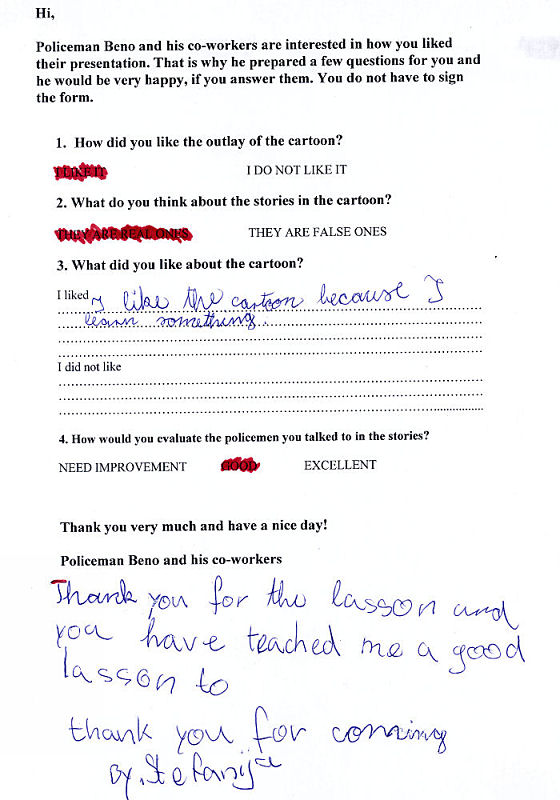 Hi,
Policeman Beno and his co-workers are interested in how you liked
their presentation. That is why he prepared a few questions for you and
he would be very happy, if you answer them. You do not have to sign
the form.
1. How did you like the outlay of the cartoon?
I LIKE IT I DO NOT LIKE IT
2. What do you think about the stories in the cartoon?
THEY ARE REAL ONES THEY ARE FALSE ONES
3. What did you like about the cartoon?
I liked I like the cartoon because I
learn something.
I did not like
4. How would you evaluate the policemen you talked to in the stories?
NEED IMPROVEMENT GOOD EXCELLENT
Thank you very much and have a nice day!
Policeman Beno and his co-workers
Thank you for the lasson and
you have teached me a good
lasson to
thank you for coming
by, Stefanija